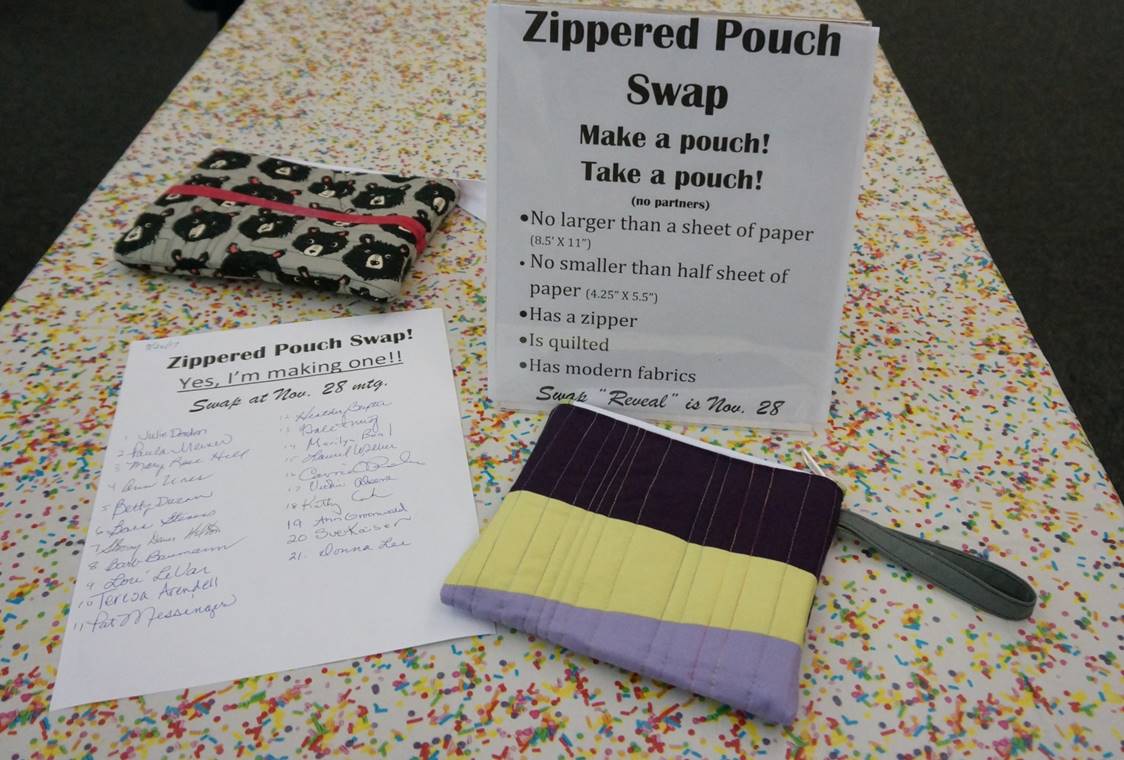 Zippered Pouch
Swap
Make a pouch!
Take a pouch!
(no partners)
•No larger than a sheet of paper
(8.5' X 11")
• No smaller than half sheet of
paper (4.25" X 5.5")
•Has a zipper
•Is quilted
•Has modern fabrics
Swap "Reveal" is Nov. 28
Zippered Pouch Swap!
Yes, I'm making one!!
Swap at Nov. 28 mtg.
1 Julie
2 Paula
3 Mary Rose Hill
4 Ann
5 Betty
6
7
8 Barb Baumann
9 Lori LeVar
10 Teresa Arendell
11 Pat Messenger
12
13
14 Marilyn
15 Laurel
16
17 Vickie
18 Kathy
19 Ann Groenwald
20 Sue Kaiser
21. Donna Lee